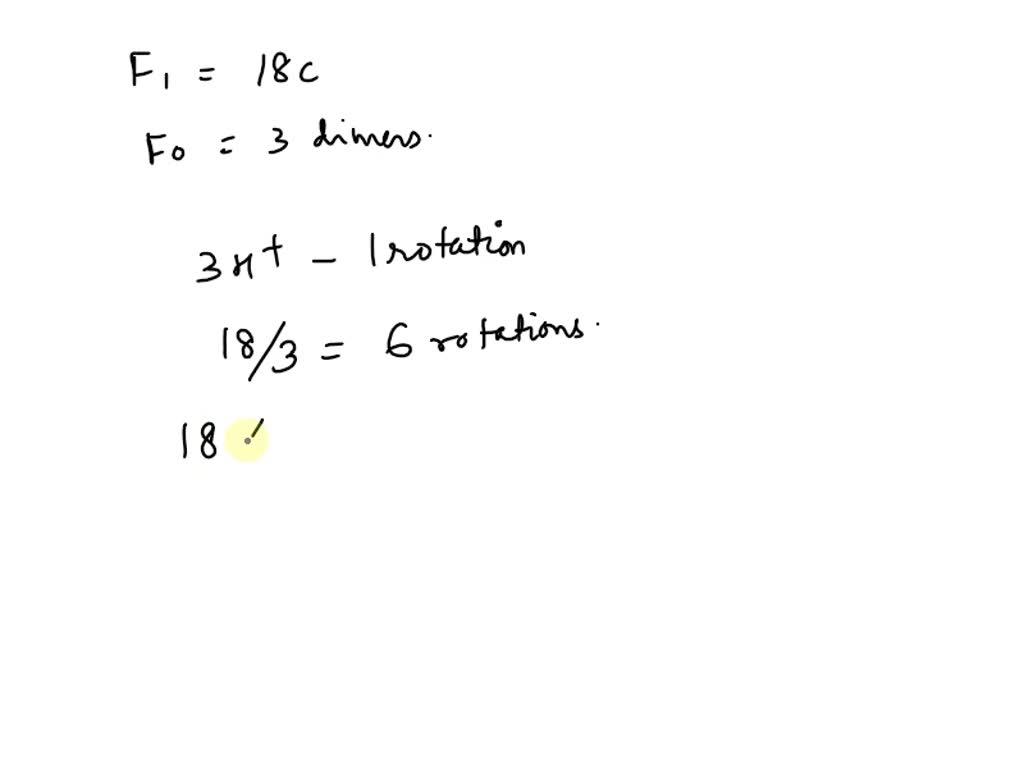 F1 = 18c
F0 = 3 dimers.
3H+ - 1 rotation
18/3 = 6 rotations.
18